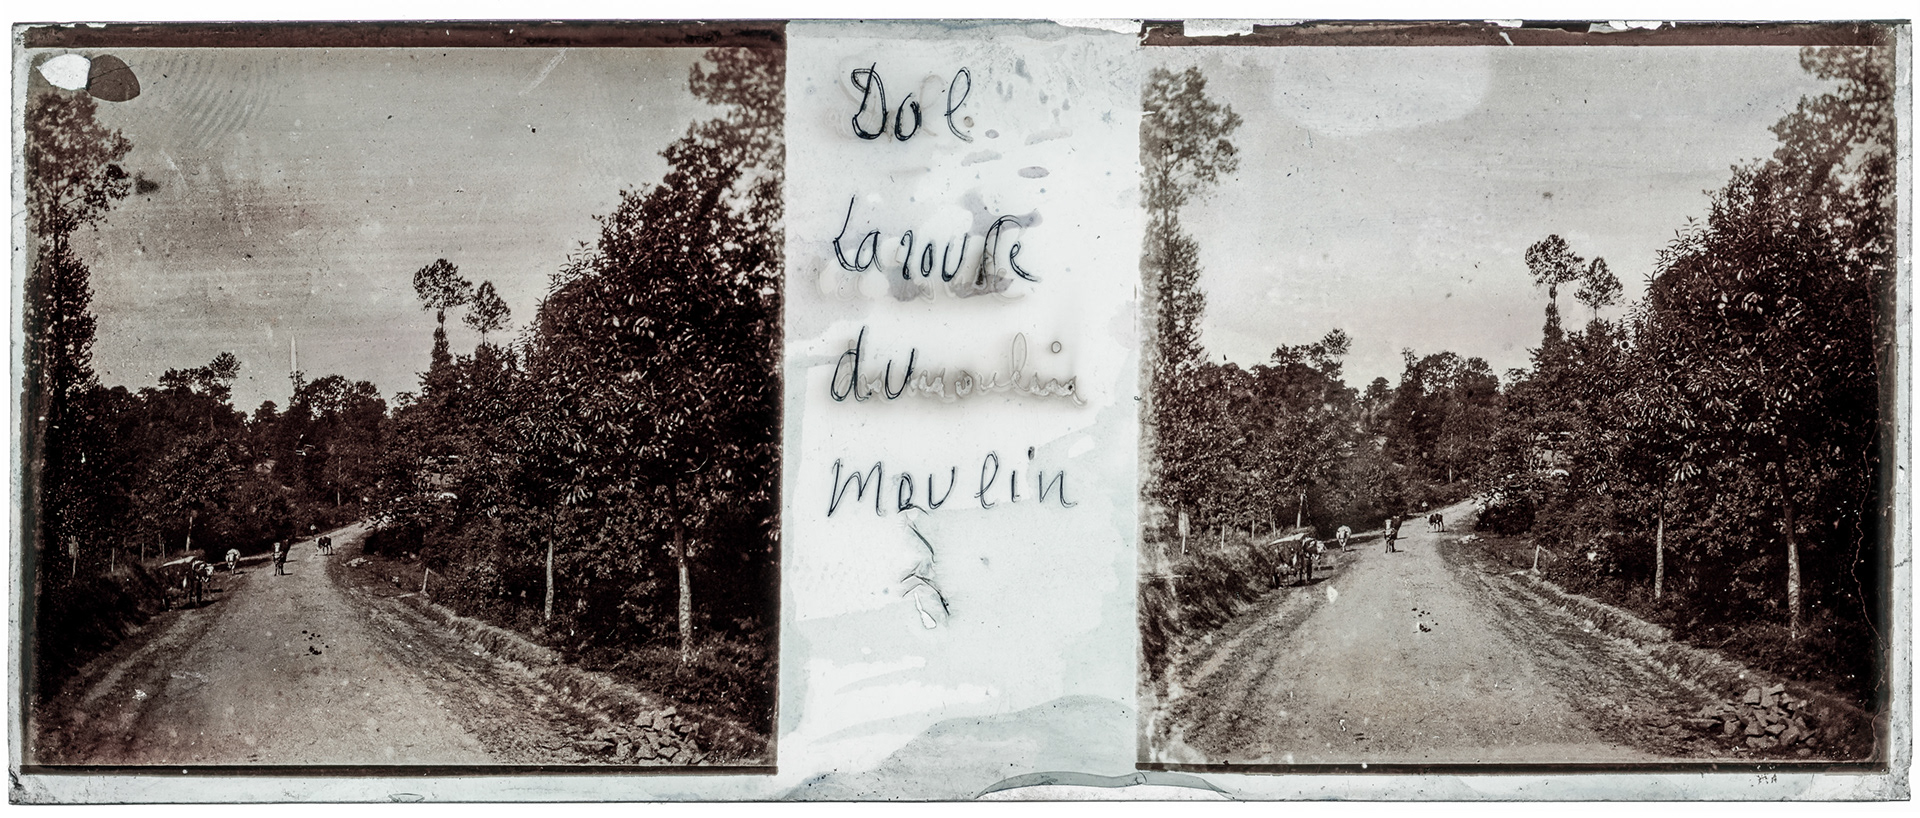 Dol
La route
du moulin
moulin